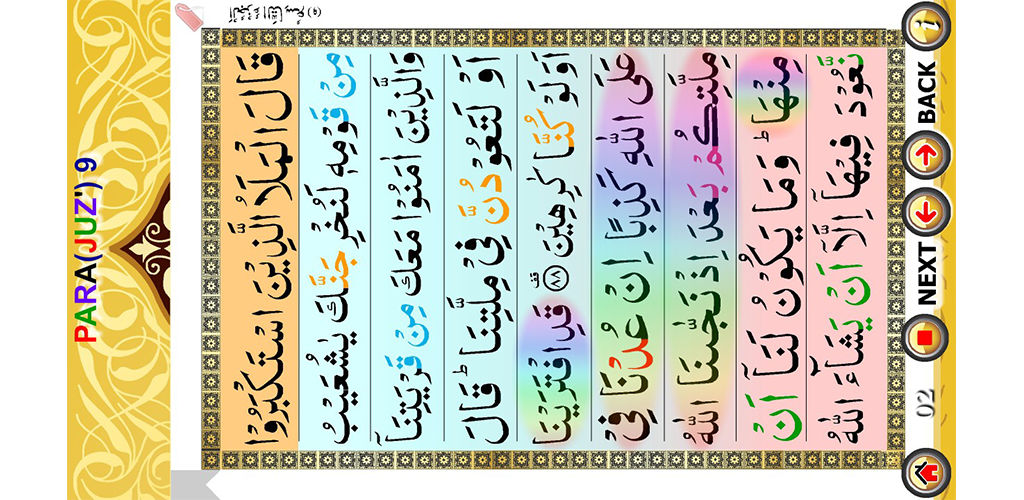 PARA(JUZ') 9
اَلْجُزْءُ التَّاسِعُ (٩)
قَالَ الْمَلَاُ الَّذِيْنَ اسْتَكْبَرُوْا
مِنْ قَوْمِهٖ لَنُخْرِجَنَّكَ يٰشُعَيْبُ
وَالَّذِيْنَ اٰمَنُوْا مَعَكَ مِنْ قَرْيَتِنَاۤ
اَوْ لَتَعُوْدُنَّ فِيْ مِلَّتِنَا ؕ قَالَ
اَوَلَوْ كُنَّا كٰرِهِيْنَ ۝٨٨ قف قَدِ افْتَرَيْنَا
عَلَى اللّٰهِ كَذِبًا اِنْ عُدْنَا فِيْ
مِلَّتِكُمْ بَعْدَ اِذْ نَجّٰىنَا اللّٰهُ
مِنْهَا ؕ وَمَا يَكُوْنُ لَنَاۤ اَنْ
نَّعُوْدَ فِيْهَاۤ اِلَّاۤ اَنْ يَّشَآءَ اللّٰهُ
02 NEXT BACK i